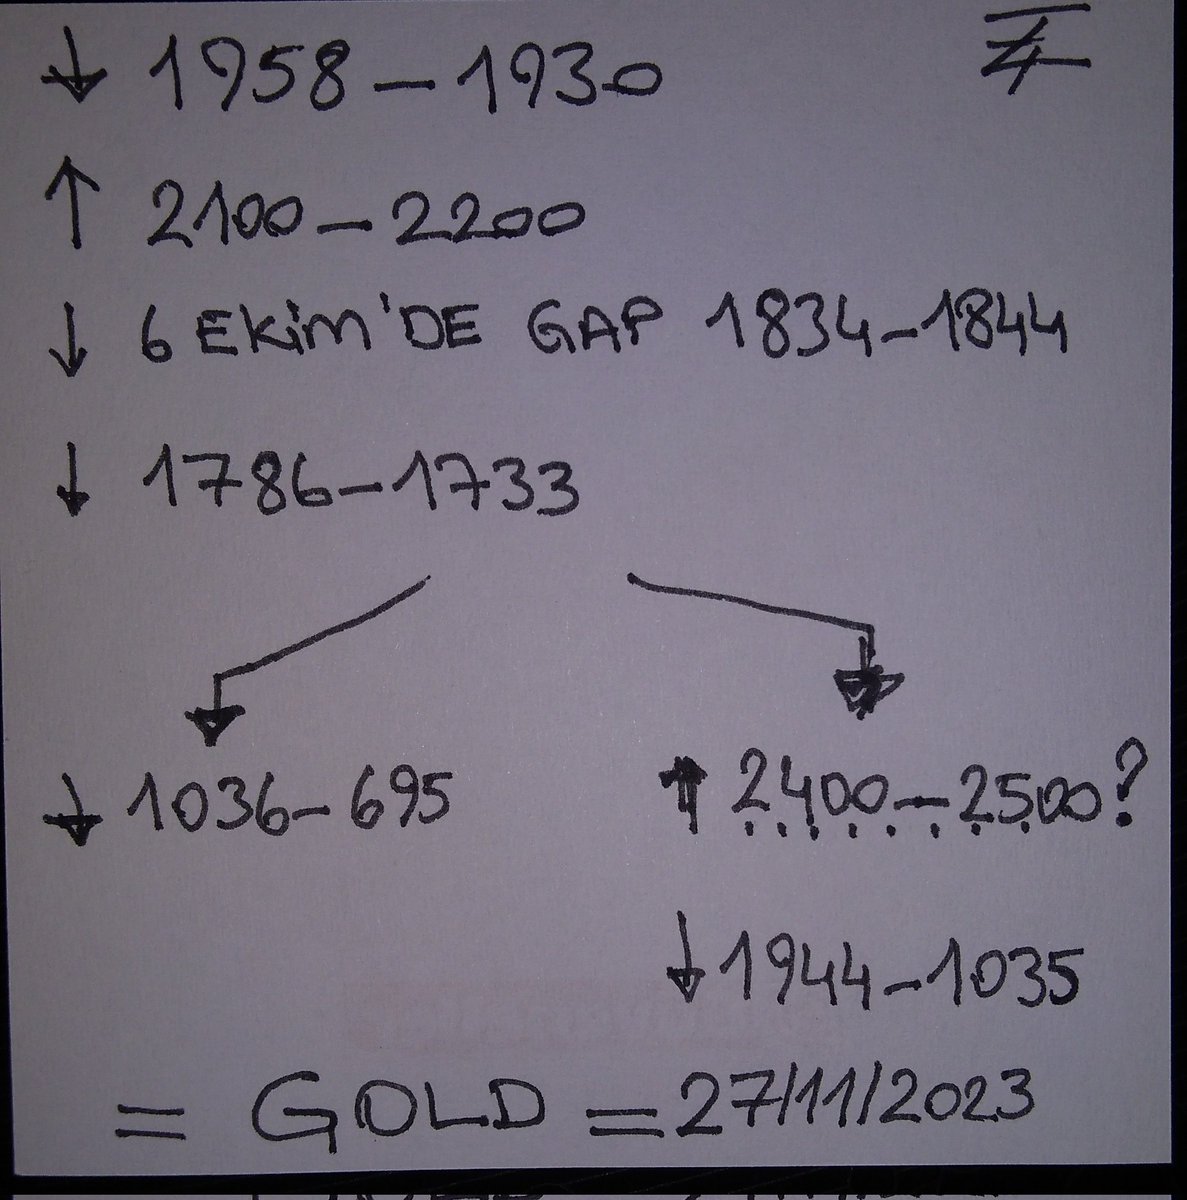 ↓ 1958-1930
↑ 2100-2200
↓ 6 EKİM'DE GAP 1834-1844
↓ 1786-1733
↓ 1036-695
↑ 2400-2500?
↓ 1944-1035
= GOLD = 27/11/2023